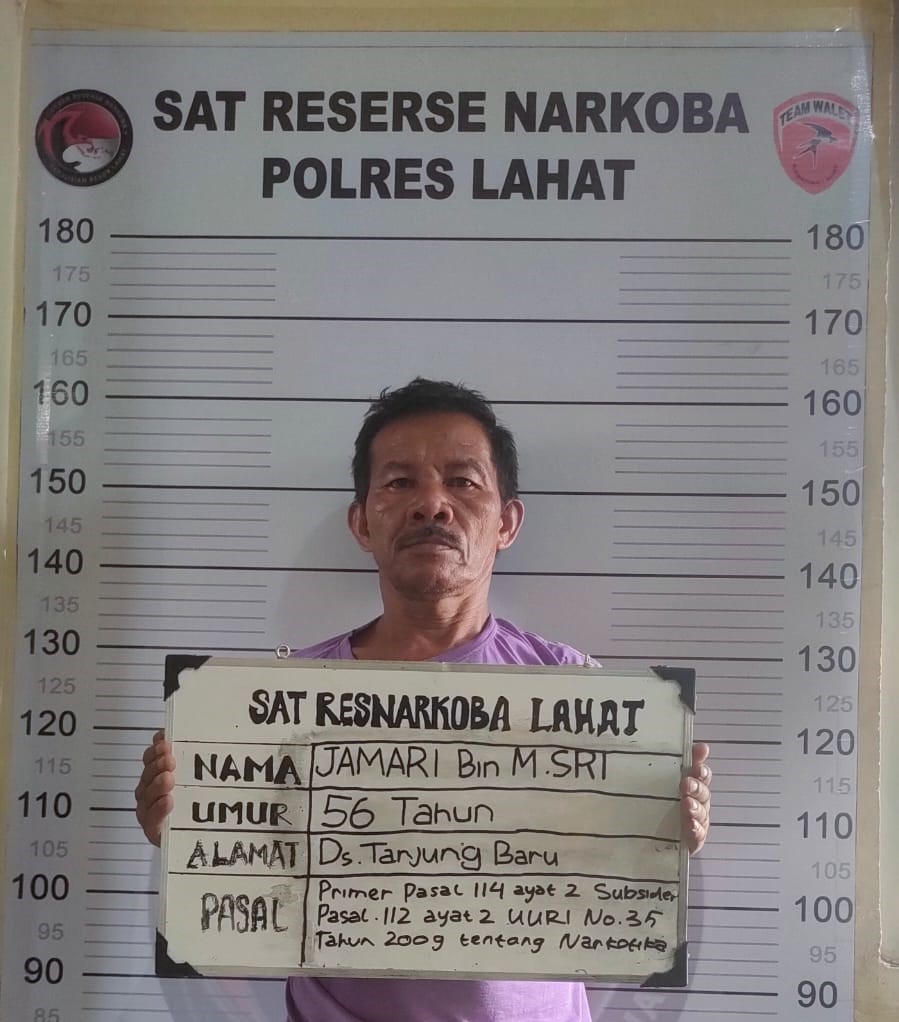 SAT RESERSE NARKOBA
POLRES LAHAT
TEAM WALET
180 180
175 175
170 170
165 165
160 160
155 155
150 150
145 145
140 140
135 135
130 130
125 125
120 120
115 115
110 110
105 105
100 100
95 95
90 90
85
SAT RESNARKOBA LAHAT
NAMA JAMARI Bin M.SRI
UMUR 56 Tahun
ALAMAT Ds.Tanjung Baru
PASAL Primer Pasal 114 ayat 2 Subsider
Pasal.112 ayat 2 UURI No.35
Tahun 2009 tentang Narkotika